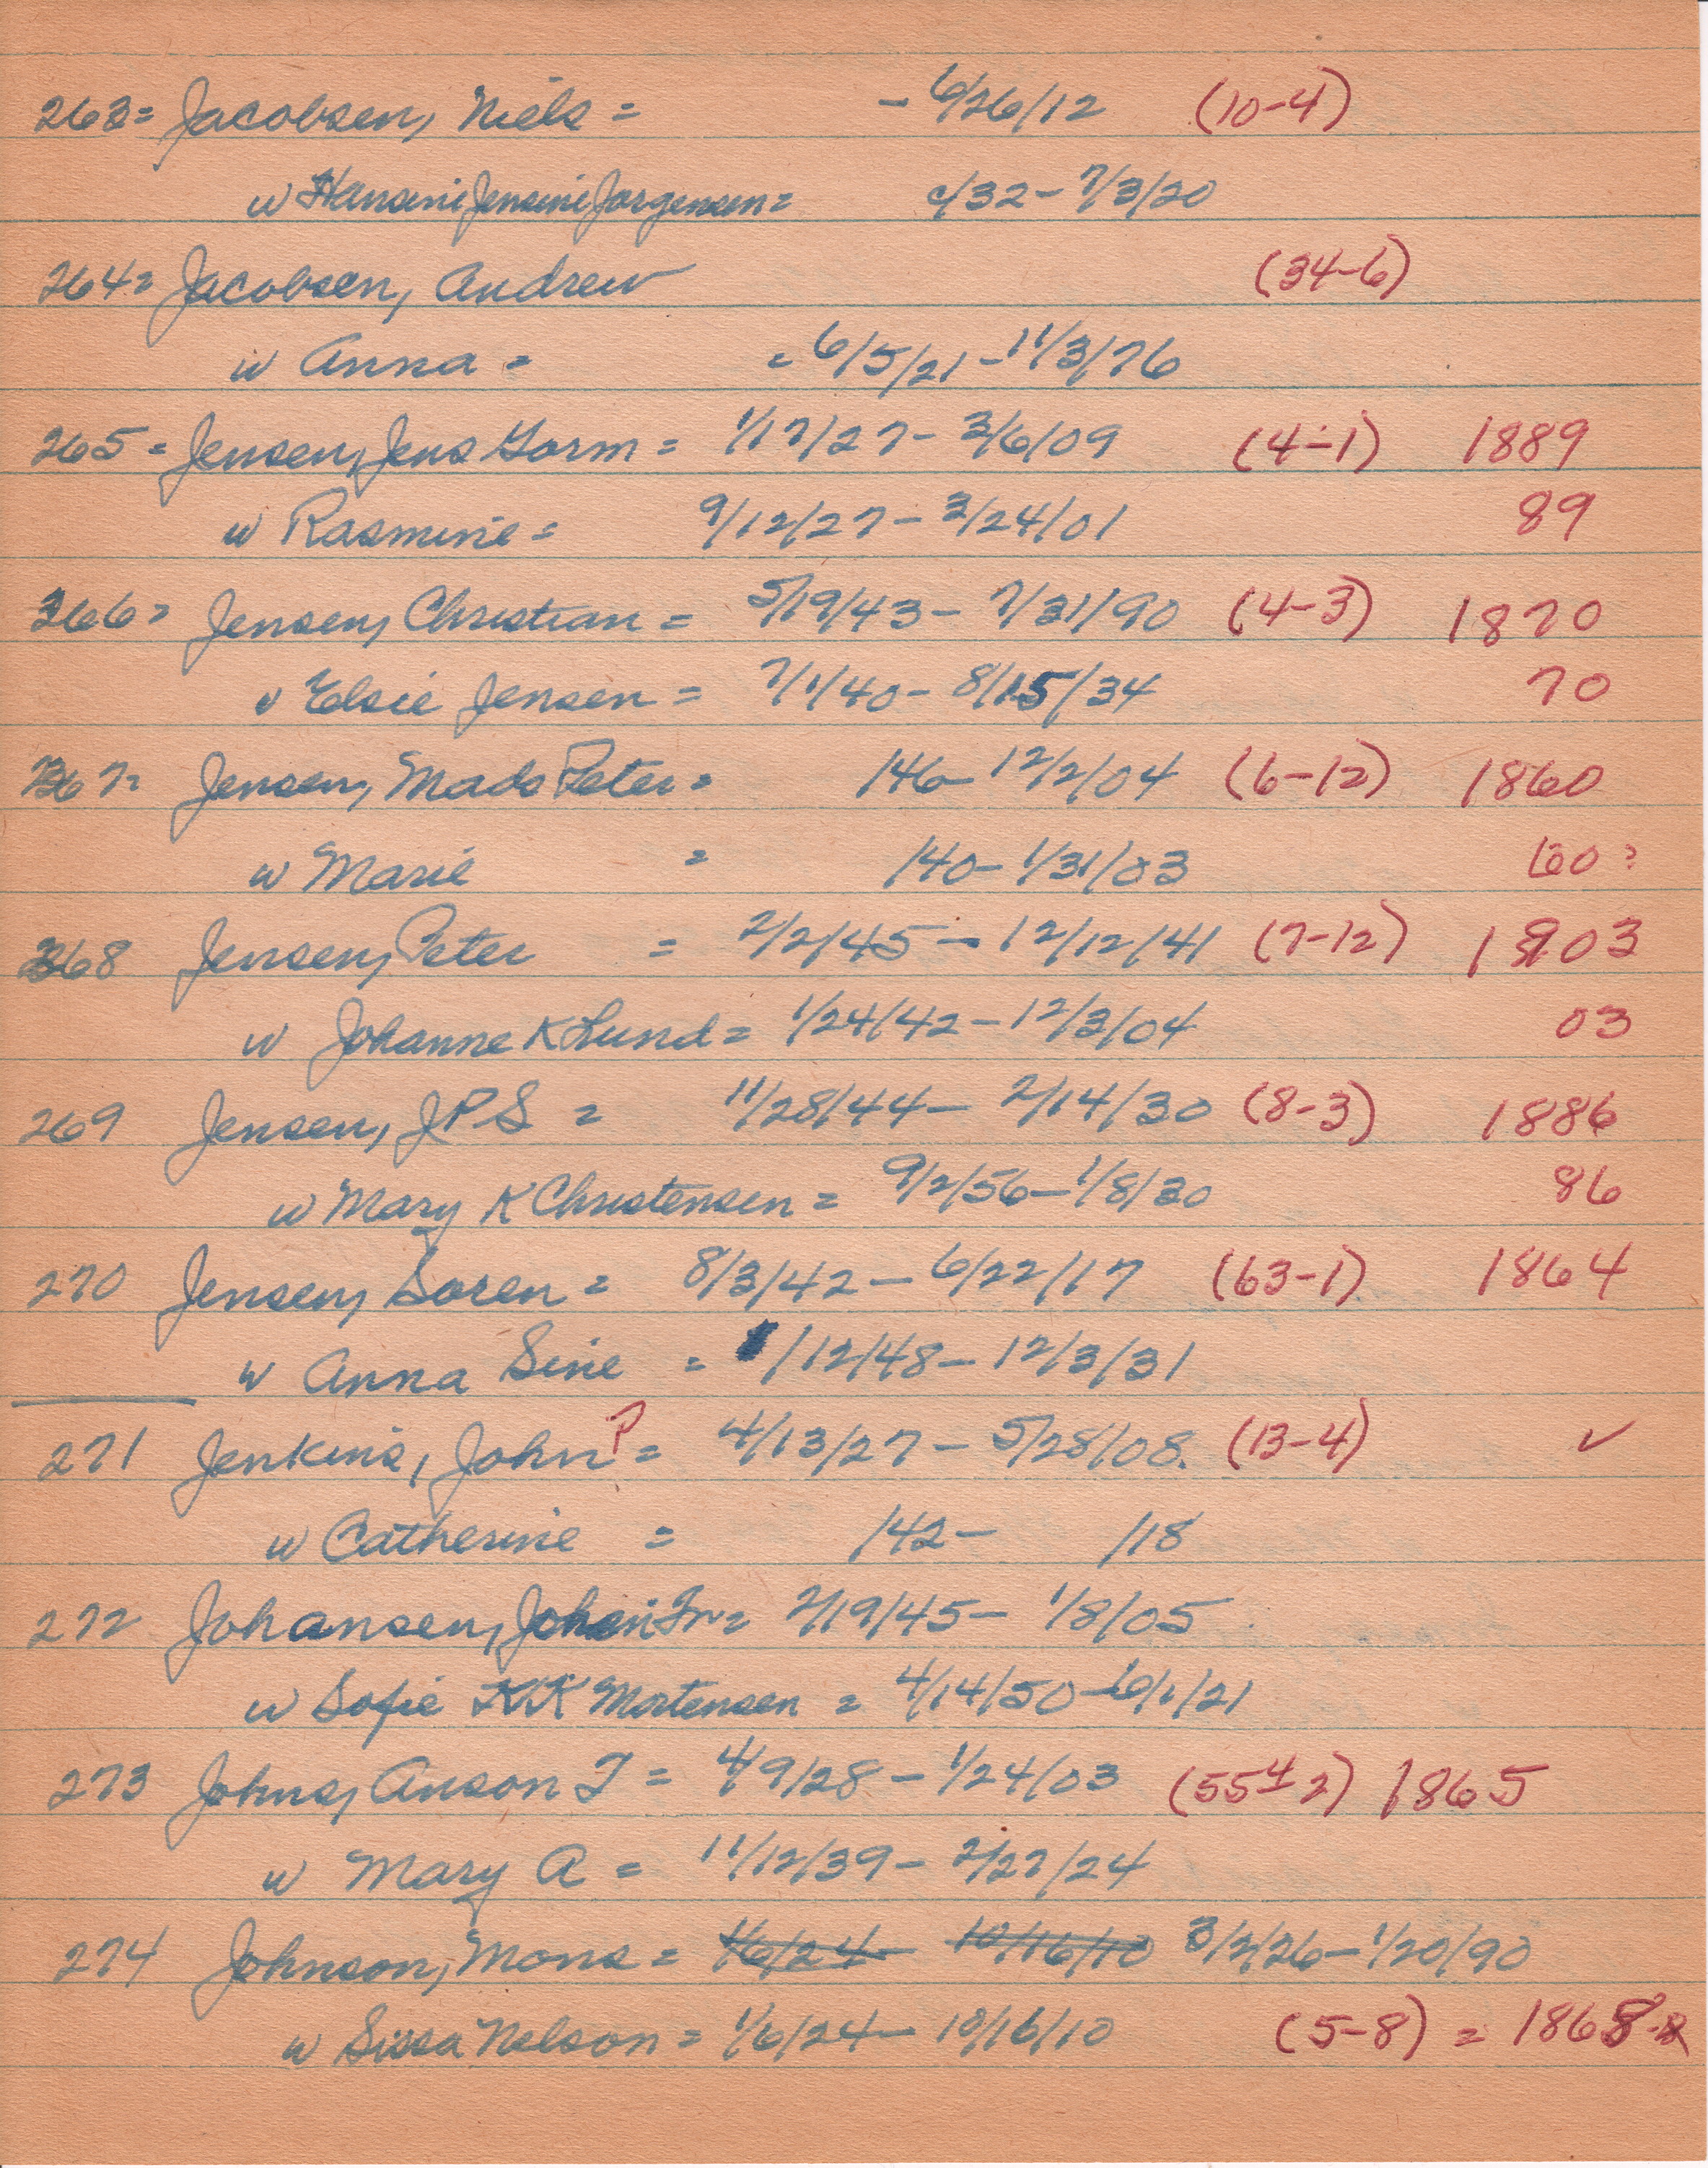 263= Jacobsen, Niels = - 6/26/12 (10-4)
w Hansine Jensine Jorgensen= c/32- 7/3/20
264= Jacobsen, Andrew (34-6)
w Anna = = 6/5/21-11/3/76
265= Jensen, Jens Gorm = 1/17/27- 3/6/09 (4-1) 1889
w Rasmine = 9/12/27- 3/24/01 89
266= Jensen, Christian = 5/19/43- 7/31/90 (4-3) 1870
w Elsie Jensen = 7/1/40- 8/15/34 70
267= Jensen, Mads Peter = /46- 12/2/04 (6-12) 1860
w Marie = /40- 1/31/03 60?
268 Jensen, Peter = 2/2/45- 12/12/41 (7-12) 1903
w Johanne K Lund = 1/24/42-12/3/04 03
269 Jensen, JPS = 11/28/44- 2/14/30 (8-3) 1886
w Mary K Christensen = 9/2/56-1/8/30 86
270 Jensen, Soren = 8/3/42- 6/22/17 (63-1) 1864
w Anna Sine = /12/48- 12/3/31
271 Jenkins, John P = 4/13/27- 5/28/08. (13-4) ✓
w Catherine = /42- /18
272 Johansen, Johan Fr= 2/19/45- 1/8/05
w Sofie KK Mortensen = 4/14/50-6/1/21
273 Johns, Anson T = 4/9/28- 1/24/03 (55-2) 1865
w Mary A = 11/12/39- 2/27/24
274 Johnson, Mons = 1/6/24- 10/16/10 3/2/26-1/20/90
w Sissa Nelson = 1/6/24- 10/16/10 (5-8) = 1868